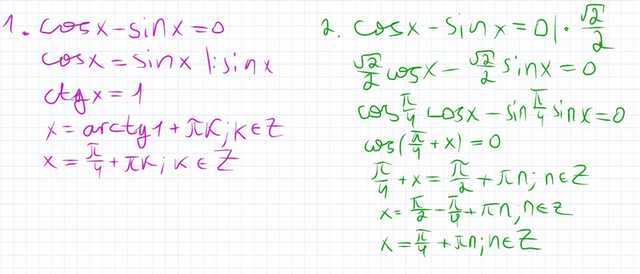 1. cosx - sinx = 0
cosx = sinx |: sinx
ctgx = 1
x = arcctg1 + πk; k ∈ Z
x = π/4 + πk; k ∈ Z
2. cosx - sinx = 0 | · √2/2
√2/2 cosx - √2/2 sinx = 0
cos π/4 cosx - sin π/4 sinx = 0
cos(π/4 + x) = 0
π/4 + x = π/2 + πn; n ∈ Z
x = π/2 - π/4 + πn, n ∈ Z
x = π/4 + πn; n ∈ Z